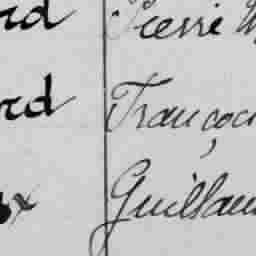 rd Pierre
rd Françoi
x Guillau